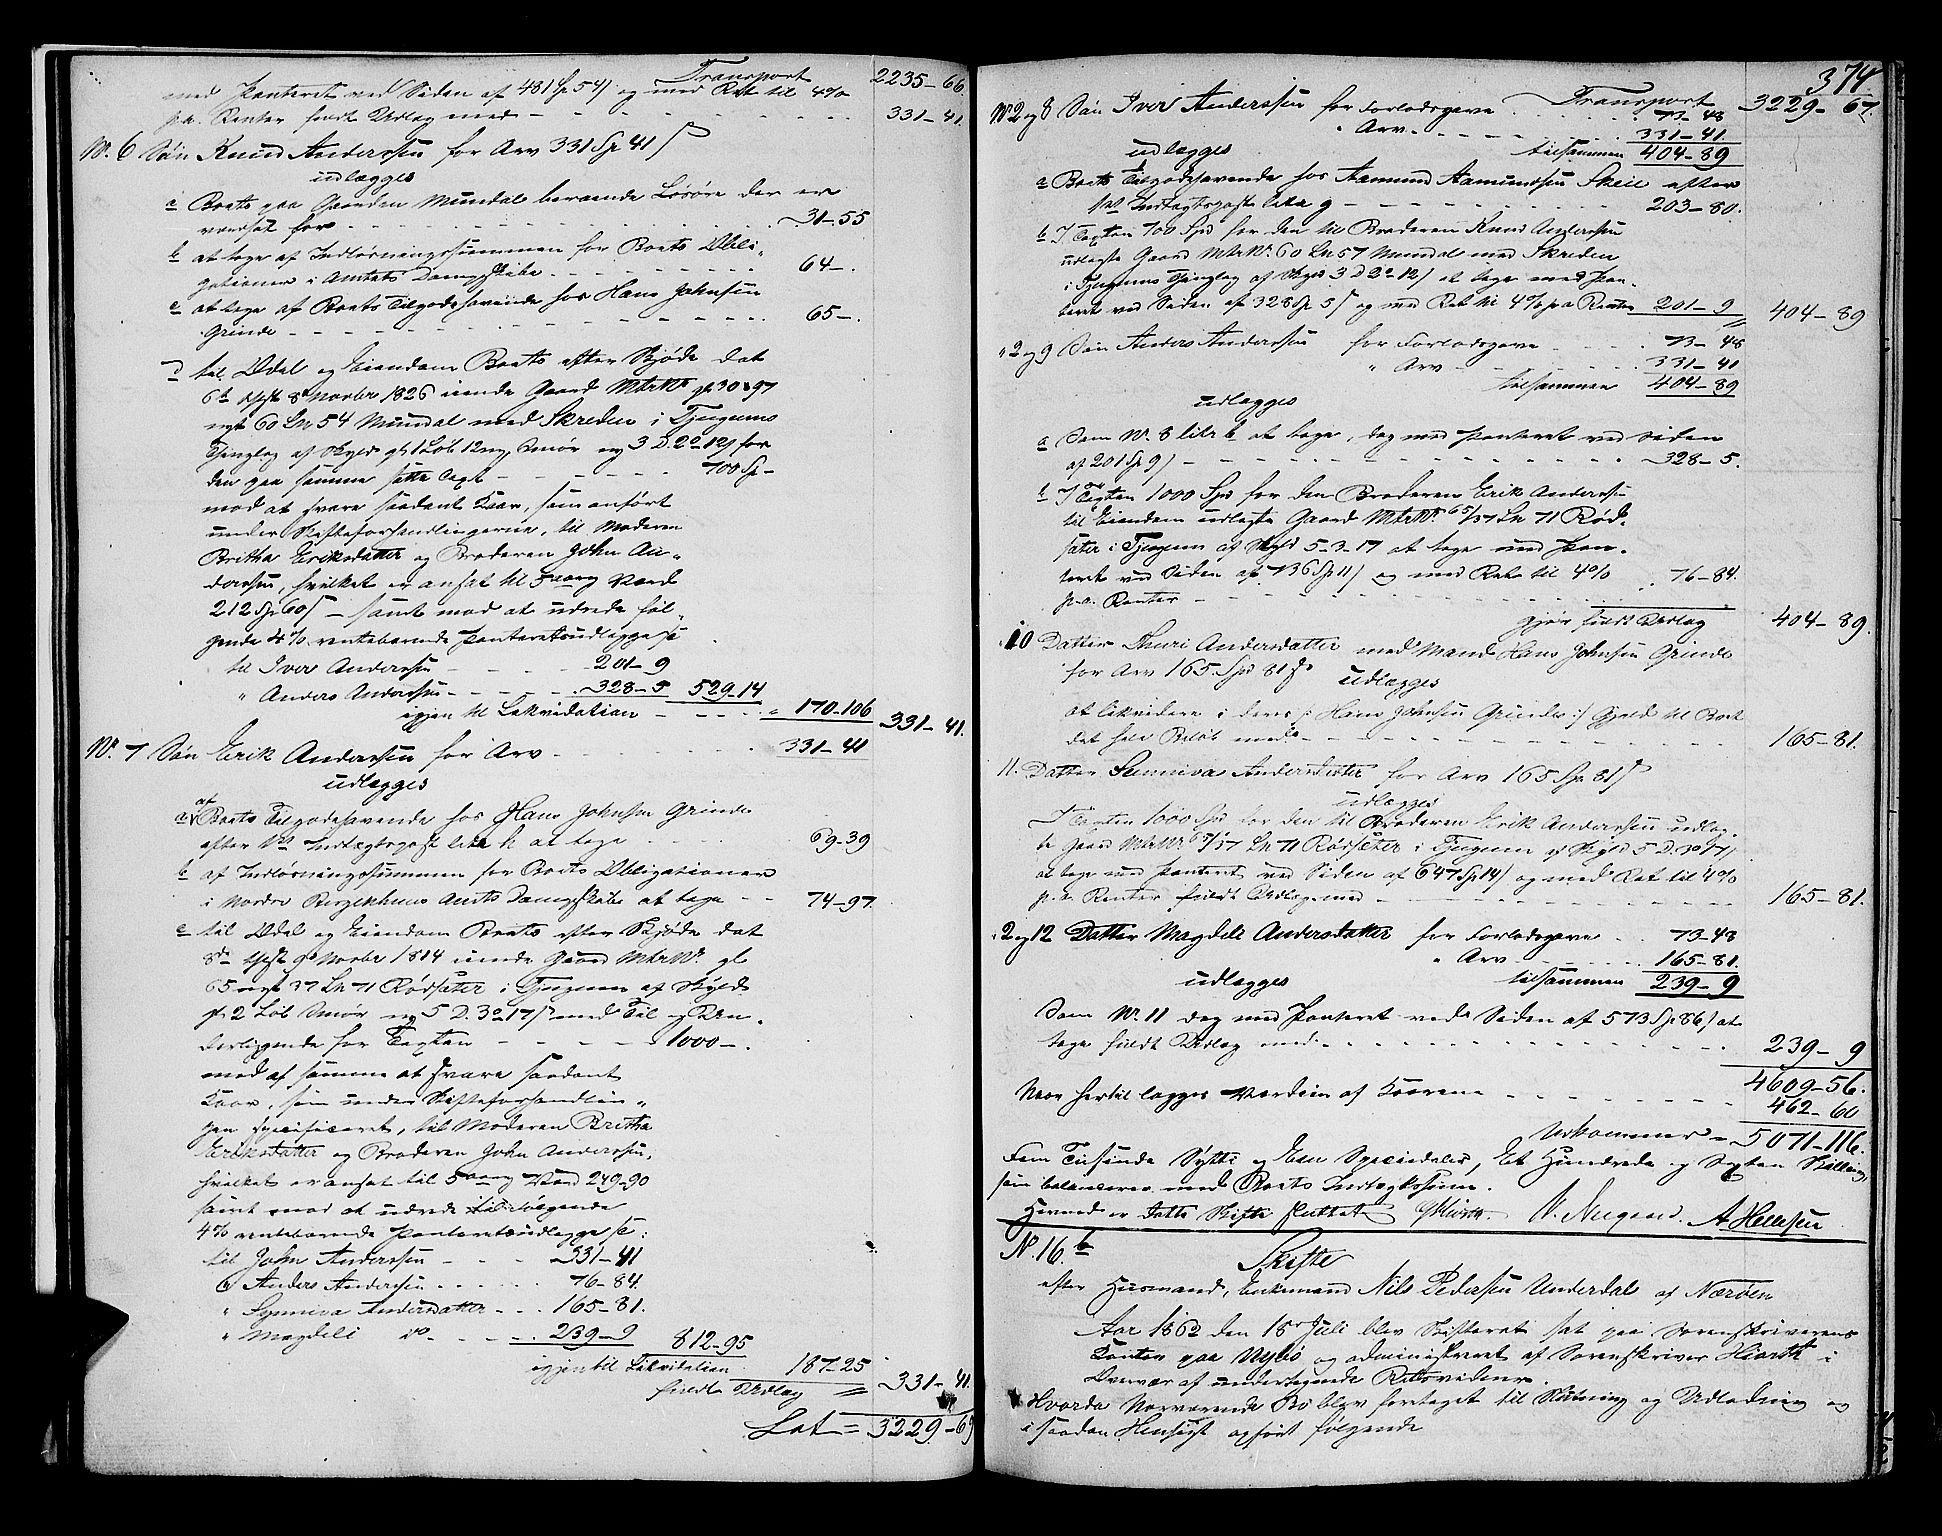 Transport 2235-66.
med Panteret ved Siden af 481 Sp 54 ʃ og med Ret til 4%
p.a. Renter fuldt Udlæg med - 331-41.
No. 6 Søn Knud Anderssen for Arv 331 Sp 41 ʃ
udlægges
a Boets paa Gaarden Mundal beroende Løsøre der er
vurdset for - 31-55
b at tage af Indløsningssummen for Boets Obli
gationer i Amtets Dampskibe - 64-.
c at tage af Boets Tilgodehavende hos Hans Johnsen
Grinde - 65-.
d til Odel og Eiendom Boets efter Skjøde dat
6te thgl. 8de Novbr 1826 eiende Gaard MtrNr gl 30 & 97
nyt 60 Ln 54 Mundal med Skreden i Tjugums
Thinglag af Skyld gl 1 Løb 12 mrk. Smør ny 3 D. 2 o 12 ʃ for
den paa samme satte Taxt - 700 Sp -
mod at svare saadant Kaar, som anført
under Skifteforhandlingerne, til Moderen
Britha Eriksdatter og Broderen John An-
derssen, hvilket er ansat til 5 aarig Værd
212 Sp 60 ʃ - samt mod at udrede føl-
gende 4% rentebærende Panteretsudlæggelse
til Iver Anderssen - 201-9
" Anders Anderssen - 328-5 529-14
igjen til Likvidation - 170-106 331-41.
No. 7 Søn Erik Anderssen for Arv - 331-41
udlægges
a af Boets Tilgodehavende hos Hans Johnsen Grinde
efter Indtægtspost litra h at tage - 69-39
b af Indløsningssummen for Boets Obligationer
i Nordre Bergenhuus Amts Dampskibe at tage - 74-97.
c til Odel og Eiendom Boets efter Skjøde dat
8de thgl. 9de Novbr 1814 eiende Gaard MtrNr. gl
65 nyt 37 Ln 71 Rødsæter i Tjugum af Skyld
gl. 2 Løb Smør ny 5 D. 3 o 17 ʃ med Til og Un-
derliggende for Taxten - 1000-.
mod af samme at svare saadant
Kaar, som under Skifteforhandlin-
gen specificeret, til Moderen Britha
Eriksdatter og Broderen John Anderssen,
hvilket er ansat til 5 aarig Værd 249-90
samt mod at udrede følgende
4% rentebærende Panteretsudlæggelse:
til John Anderssen - 331-41
" Anders Anderssen - 76-84.
" Synneva Andersdatter - 165-81.
" Magdeli do - 239-9 812-95
igjen til Likvidation 187-25
fuldt Udlæg 331-41.
Lat = 3229-67
374
Transport 3229-67.
No 2 og 8 Søn Iver Anderssen for Forlodsgave - 73-48
" Arv - 331-41
udlægges tilsammen 404-89
a Boets Tilgodehavende hos Aamund Aamundsen Skeie efter
Indtægtspost litra g - 203-80.
b I Taxten 700 Spd for den til Broderen Knud Anderssen
udlagte Gaard MtrNr. 60 Ln 57 Mundal med Skreden
i Tjugums Thinglag af Skyld 3 D 2 o 12 ʃ at tage med Pan-
teret ved Siden af 328 Sp 5 ʃ og med Ret til 4% p.a Renter 201-9 404-89
" 2 og 9 Søn Anders Anderssen for Forlodsgave - 73-48
" Arv - 331-41
tilsammen 404-89
udlægges
a Som No. 8 litr b at tage, dog med Panteret ved Siden
af 201 Sp 9 ʃ - 328-5.
b I Taxten 1000 Spd for den Broderen Erik Anderssen
til Eiendom udlagte Gaard MtrNr. 65/37 Ln 71 Rød-
sæter i Tjugum af Skyld 5-3-17 at tage med Pan-
teret ved Siden af 736 Sp 11 ʃ og med Ret til 4%
p.a. Renter - 76-84.
Gjør fuldt Udlæg 404-89.
" 10 Datter Thuri Andersdatter med Mand Hans Johnsen Grinde
for Arv 165 Spd 81 ʃ udlægges
at likvidere i deres /: Hans Johnsen Grindes :/ Gjæld til Boet
det hele Beløb med - 165-81.
11. Datter Sunniva Andersdatter for Arv 165 Sp 81 ʃ
udlægges
I Taxten 1000 Spd for den til Broderen Erik Anderssen udlag-
te Gaard MtrNr 65/37 Ln 71 Rødsæter i Tjugum af Skyld 5 D. 3 o 17 ʃ
at tage med Panteret ved Siden af 647 Sp 14 ʃ og med Ret til 4%
p.a. Renter fuldt Udlæg med - 165-81.
" 2 og 12 Datter Magdeli Andersdatter for Forlodsgave - 73-48
" Arv - 165-81.
udlægges tilsammen 239-9
Som No. 11 dog med Panteret ved Siden af 573 Sp 86 ʃ at
tage fuldt Udlæg med - 239-9
4609-56.
Naar hertil lægges Værdien af Kaarene - 462-60
Udkommer - 5071-116.
Fem Tusinde Sytti og Een Speciedaler, Et Hundrede og Sexten Skilling,
som balancerer med Boets Indtægtssum.
Hermed er dette Skifte sluttet Hiorth. A. Hellesen
N. 16. b
Skifte
efter Husmand, Enkemand Nils Pedersen Underdal af Nærøen
Aar 1862 den 18de Juli blev Skifteret sat paa Sorenskriverens
Kontor paa Nybø og administreret af Sorenskriver Hiorth i
Overvær af undertegnede Retsvidner.
Hvorda Nærværende Bo blev foretaget til Slutning og Udlodning og
i saadan Hensigt opført følgende